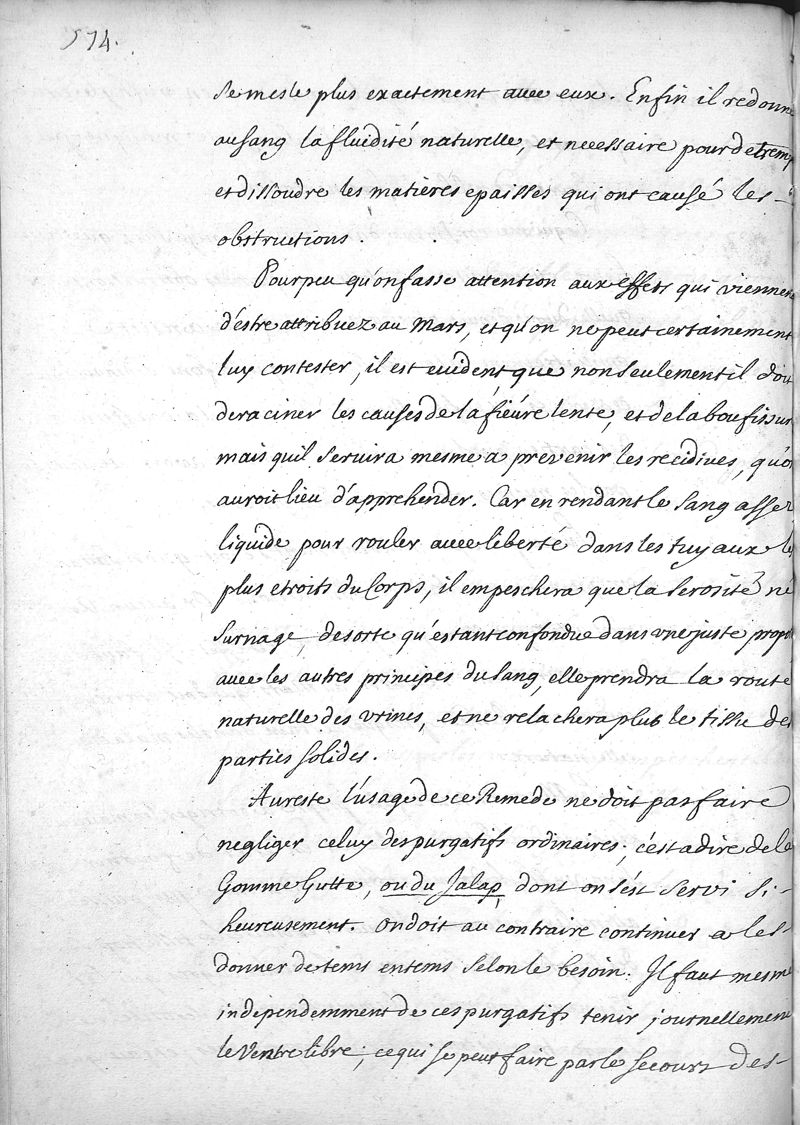 574.
se mesle plus exactement avec eux. Enfin il redonne
au sang la fluidité naturelle, et necessaire pour detremp
et dissoudre les matieres epaisses qui ont causé les
obstructions.
Pour peu qu'on fasse attention aux effets qui viennent
d'estre attribuez au Mars, et qu'on ne peut certainement
luy contester, il est evident que non seulement il doit
deraciner les causes de la fiévre lente, et de la bouffissur
mais quil servira mesme a prevenir les recidives, qu'o
auroit lieu d'apprehender. Car en rendant le sang assez
liquide pour rouler avec liberté dans les tuyaux le
plus etroits du Corps, il empeschera que la serosité ne
surnage, de sorte qu'estant confondue dans une juste propo
avec les autres principes du sang, elle prendra la route
naturelle des urines, et ne relachera plus le tissu des
parties solides.
Au reste l'usage de ce Remede ne doit pas faire
negliger celuy des purgatifs ordinaires, c'est a dire de la
Gomme Gutte, ou du Jalap, dont on s'est servi si
heureusement. On doit au contraire continuer a les
donner de tems en tems selon le besoin. Il faut mesme
independemment de ces purgatifs tenir journellement
le Ventre libre, ce qui se peut faire par le secours des